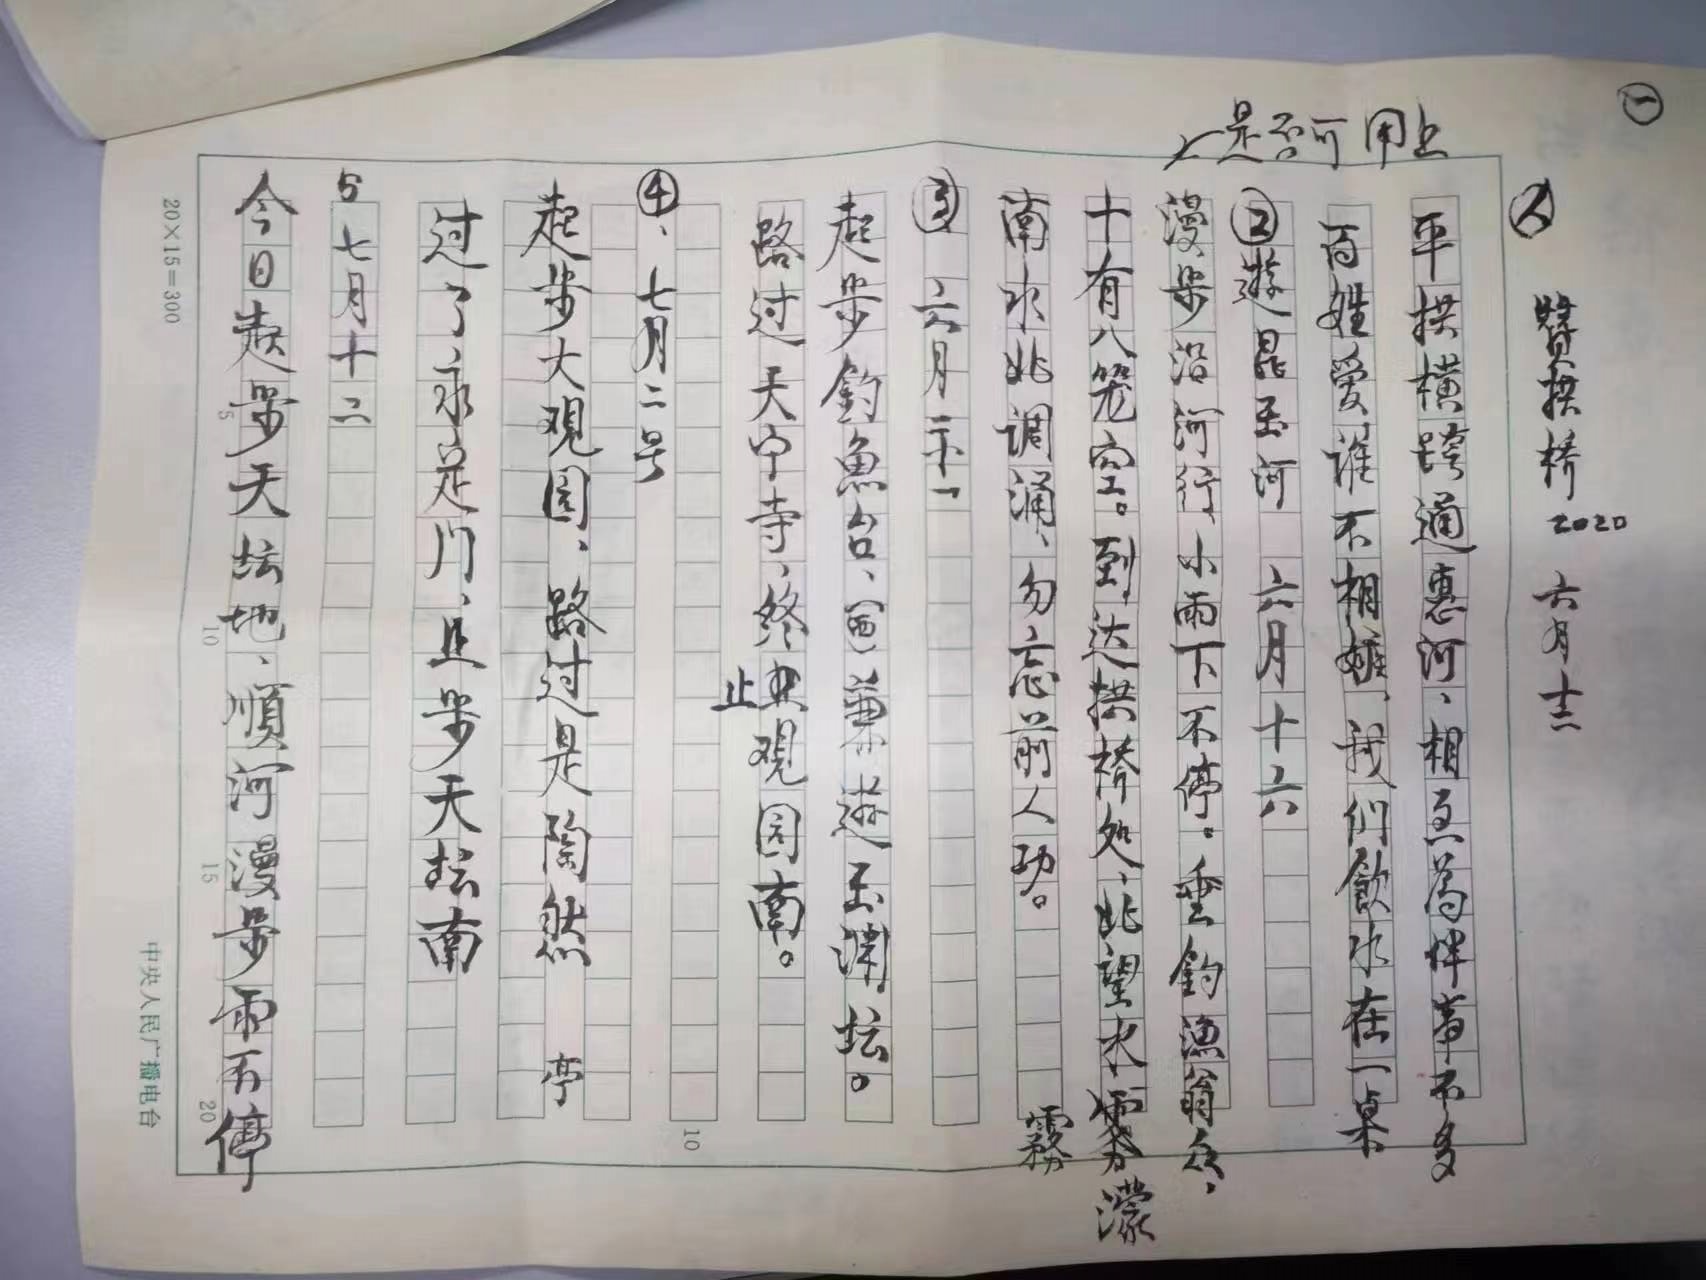 一
人 贊拱桥 2020 六月十二
平拱橫跨通惠河、相互為伴音不多
百姓爱谁不相嫉、我们飲水在一桌
是否可用上
②遊昆玉河 六月十六
漫步沿河行、小雨下不停。垂釣漁翁众、
十有八笼空。到达拱橋处、北望水霧濛
霧
南水北调涌、勿忘前人功。
③ 六月二十一
起步釣魚台、(西)兼遊玉渊。坛。
路过天宁寺、终止观园南。
④、七月二号
起步大观园、路过是陶然亭
过了永定门、且步天坛南
5 七月十二
今日起步天坛地、順河漫步雨不停
5
10
15
20
10
20×15=300
中央人民广播电台